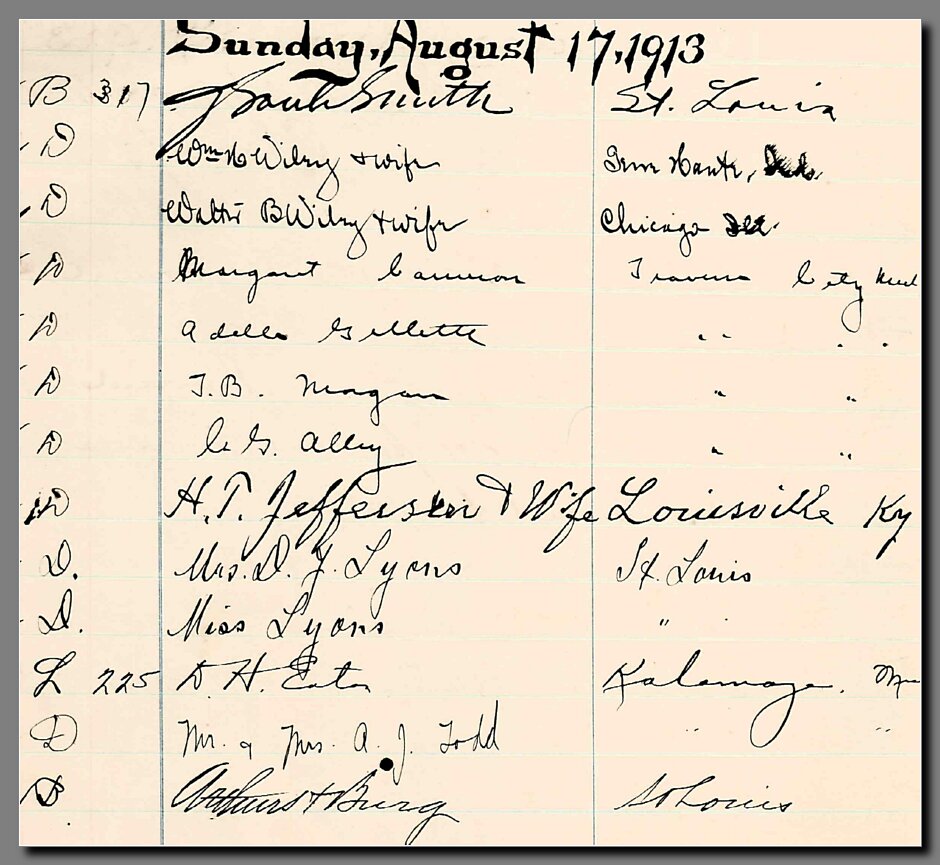 Sunday, August 17, 1913
B 317 Frank Smith St. Louis
D Wm H Wiley & wife Terre Haute,
D Walter B Wiley & wife Chicago
D Margaret Cameron Traverse City Mich
D Adella Gillette " "
D T.B. Morgan " "
D C. G. Alley " "
D H.T. Jefferson & Wife Louisville Ky
D. Mrs. D. J. Lyons St. Louis
D. Miss Lyons "
L 225 D. H. Eaton Kalamazoo.
D Mr. & Mrs. A. J. Todd " "
St Louis